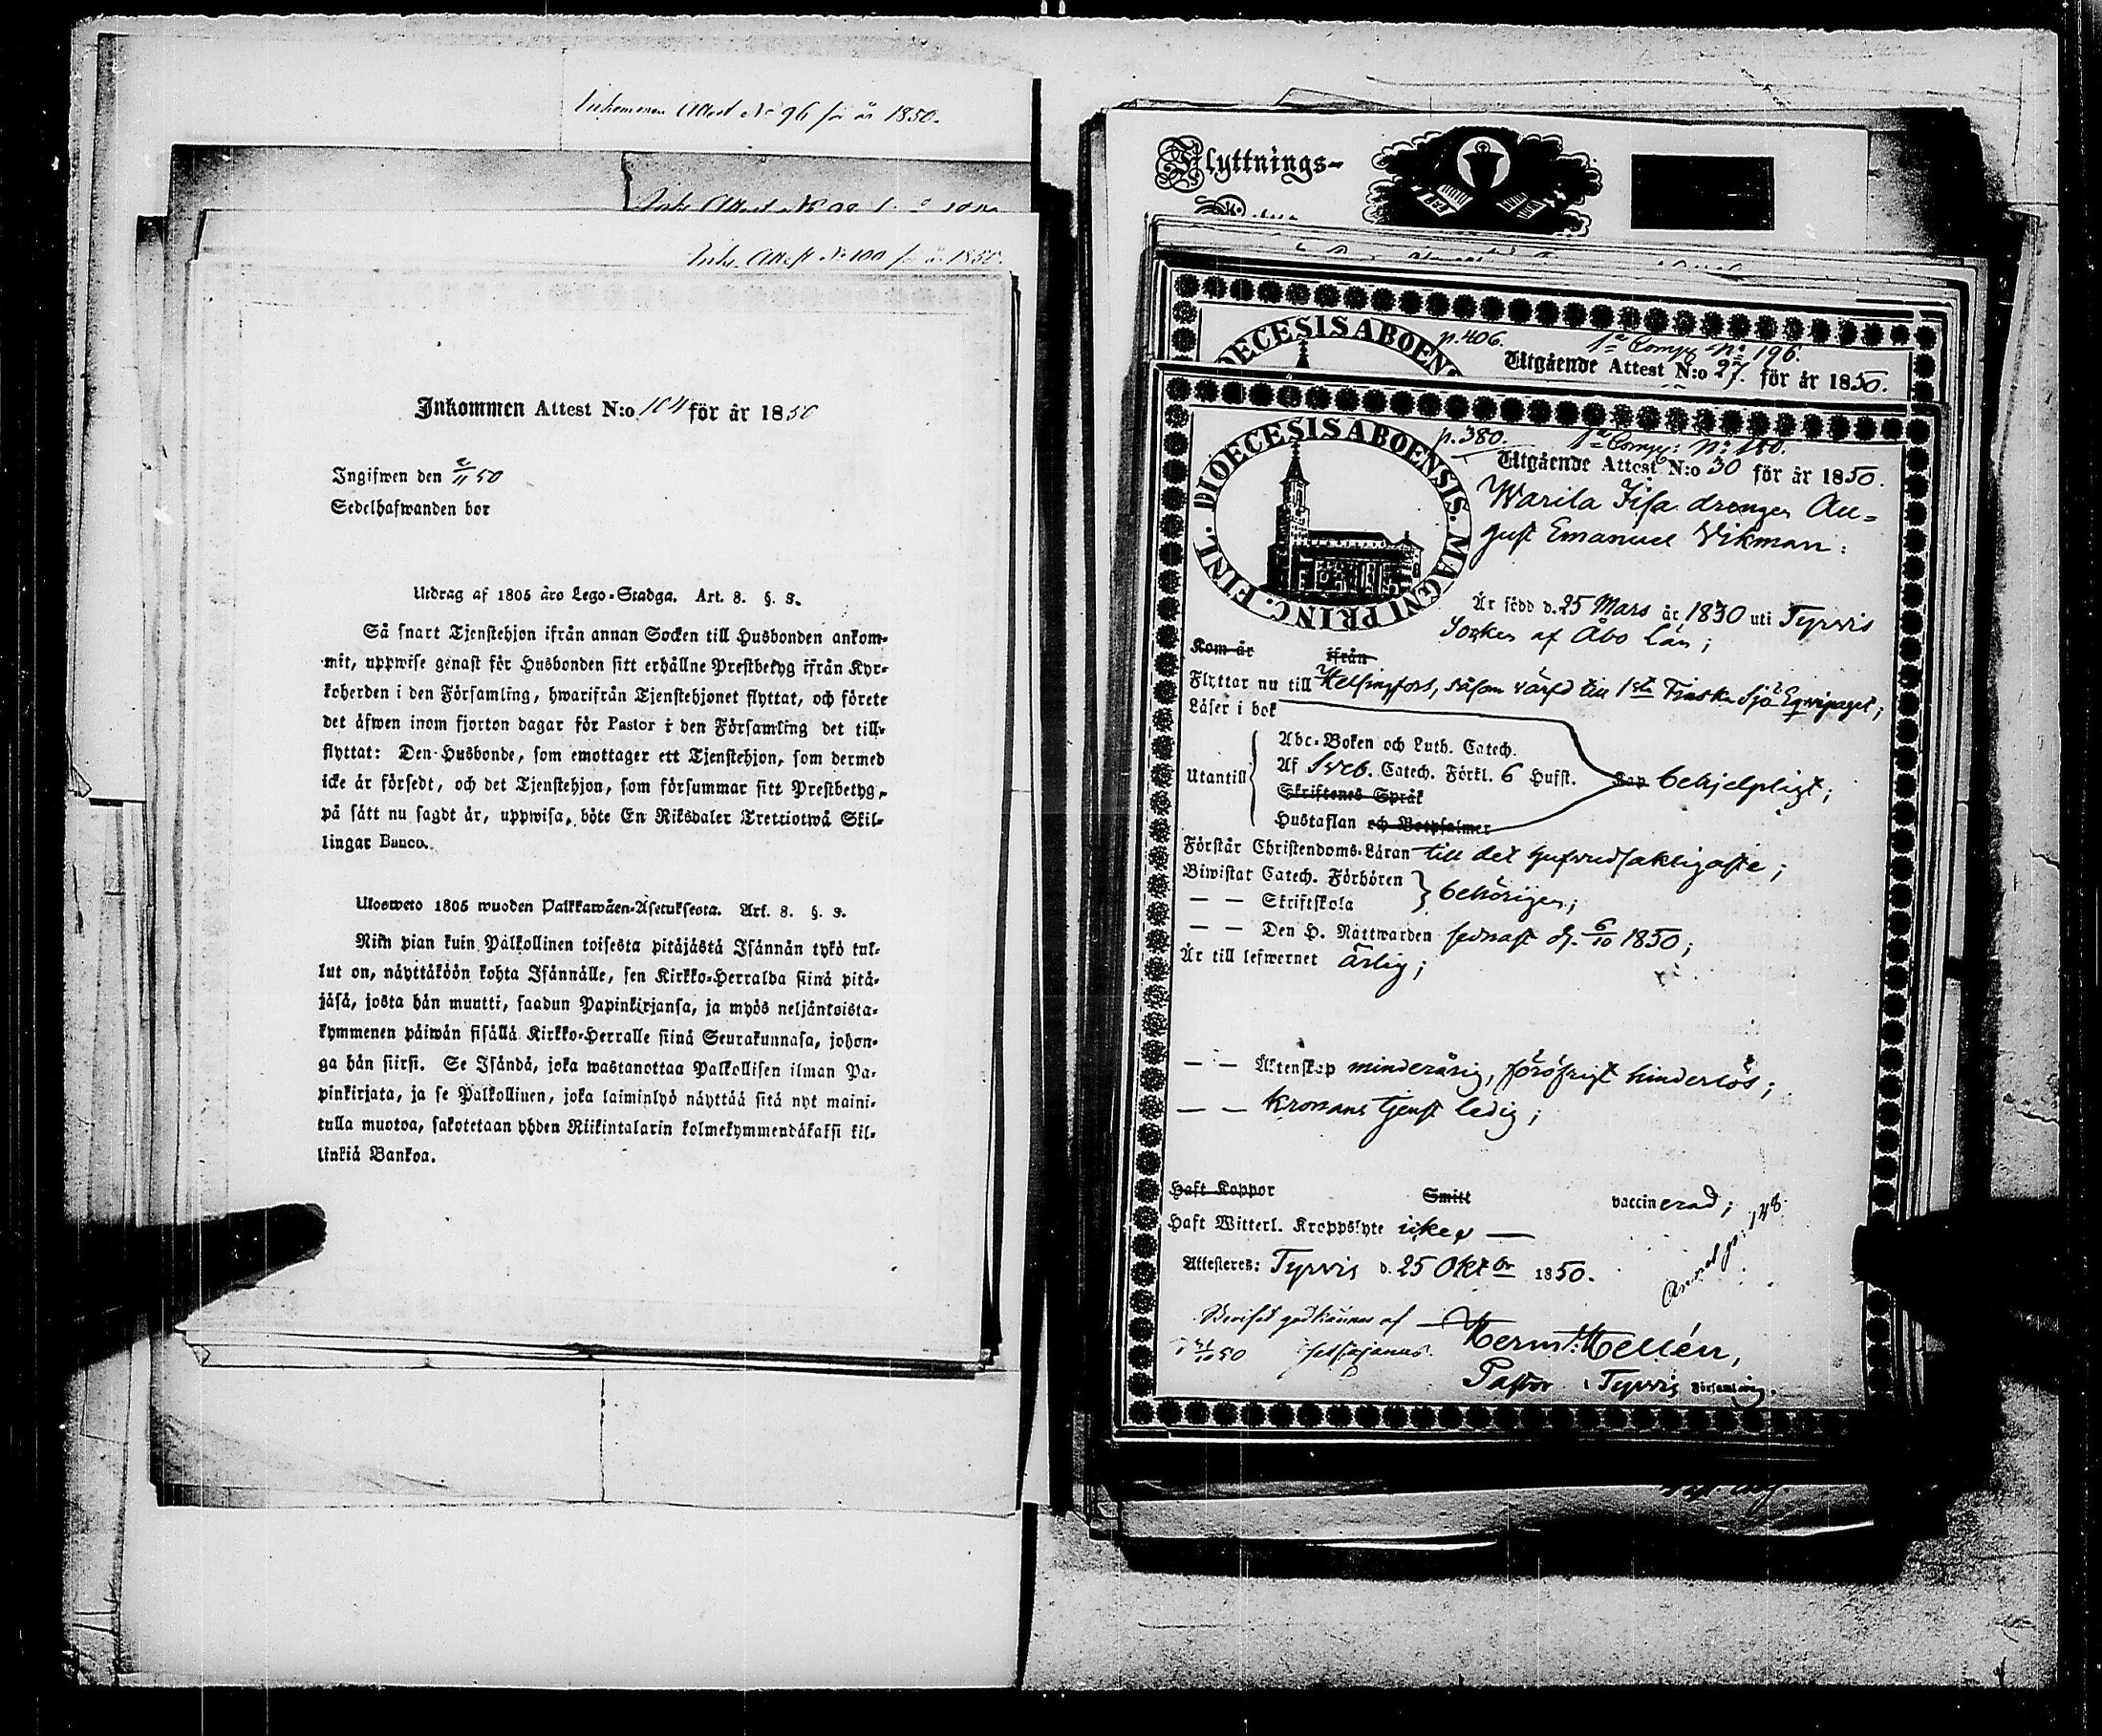 Inkommen Attest No 96 för år 1850.
Ink. Attest No 100 för år 1850.
Inkommen Attest N:o 104 för år 1850
Ingifwen den 2/11 50
Sedelhafwanden bor
Utdrag af 1805 års Lego-Stadga. Art. 8. §. 3.
Så snart Tjenstehjon ifrån annan Socken till Husbonden ankom-
mit, uppwise genast för Husbonden sitt erhållne Prestbetyg ifrån Kyr-
koherden i den Församling, hwarifrån Tjenstehjonet flyttat, och förete
det äfwen inom fjorton dagar för Pastor i den Församling det till-
flyttat: Den Husbonde, som emottager ett Tjenstehjon, som dermed
icke är försedt, och det Tjenstehjon, som försummar sitt Prestbetyg,
på sätt nu sagdt är, uppwisa, böte En Riksdaler Trettiotwå Skil-
lingar Banco.
Uloswето 1805 wuoden Palkkawäen-Asetuksesta. Art. 8. §. 3.
Niin pian kuin Palkollinen toisesta pitäjästä Isännän tykö tul-
lut on, näyttäköön kohta Isännälle, sen Kirkko-Herralda siinä pitä-
jäsä, josta hän muutti, saadun Papinkirjansa, ja myös neljäntoista-
kymmenen päiwän sisällä Kirkko-Herralle siinä Seurakunnasa, johon-
ga hän siirsi. Se Isändä, joka wastanottaa Palkollisen ilman Pa-
pinkirjata, ja se Palkollinen, joka laiminlyö näyttää sitä nyt maini-
tulla muotoa, sakotetaan yhden Riikintalarin kolmekymmendäkaksi kil-
linkiä Bankoa.
Flyttnings-
DIOECESIS ABOENS
p. 406.
1a Comp. No 196.
Utgående Attest N:o 27. för år 1850.
DIOECESIS ABOENSIS. MAGNI PRINC. FINL.
p. 380.
1a Comp: No 150.
Utgående Attest N:o 30 för år 1850.
Warila Jisa drengen Au=
gust Emanuel Vikman:
Är född d. 25 Mars år 1830 uti Tyrvis
Socken af Åbo Län;
Kom år ifrån
Flyttar nu till Helsingfors, såsom värfd till 1sta Finska Sjö Eqvipaget;
Läser i bok
Abc-Boken och Luth. Catech.
Utantill Af Sveb. Catech. Förkl. 6 Hufst. behjelpligt;
Skriftenes Språk
Hustaflan och Botpsalmer
Förstår Christendoms-Läran till det hufvudsakligaste;
Biwistat Catech. Förhören
— — Skriftskola behörigen;
— — Den H. Nattwarden sednast d. 6/10 1850;
Är till lefwernet ärlig;
— — Äktenskap minderårig, föröfrigt hinderlös;
— — Kronans tjenst ledig;
Haft Koppor Smitt vaccinerad;
Haft Witterl. Kroppslyte icke, —
Attesteres: Tyrvis d. 25 Oktbr 1850.
Beviset godkännes af
Herm: Hellén,
Pastor i Tyrvis Församling.